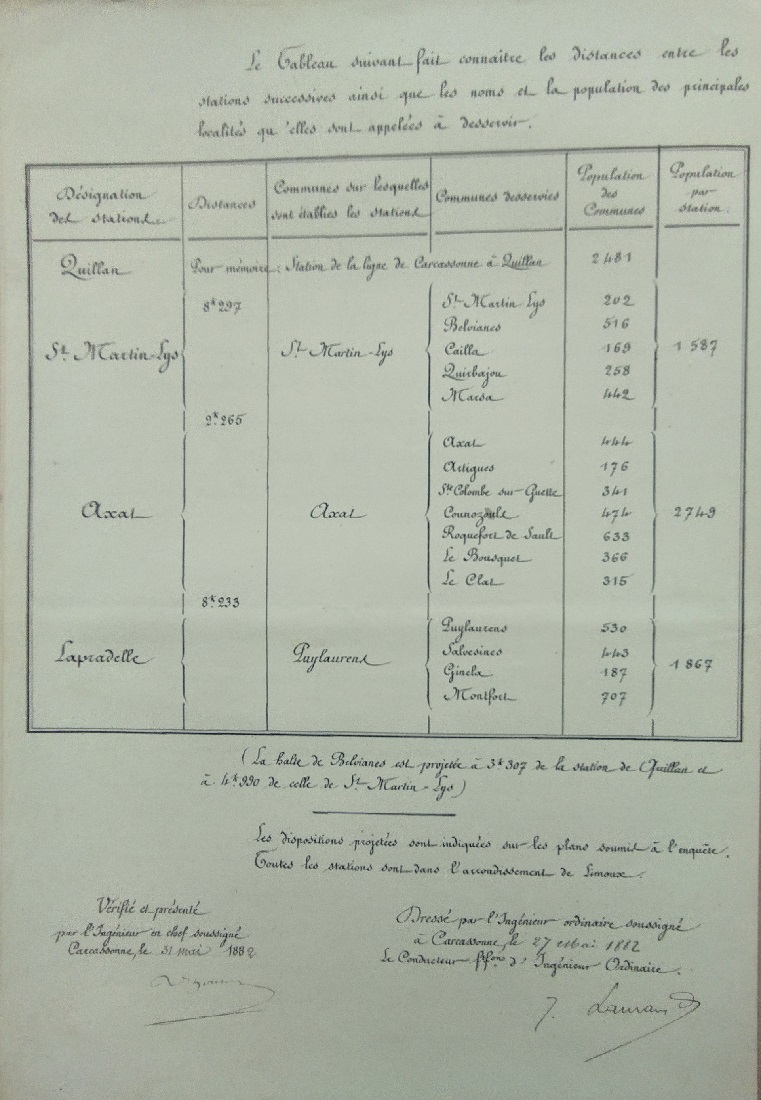 Le Tableau suivant fait connaître les distances entre les
stations successives ainsi que les noms et la population des principales
localités qu'elles sont appelées à desservir.
Désignation des stations. Distances Communes sur lesquelles sont établies les stations Communes desservies Population des Communes Population par station.
Quillan Pour mémoire: Station de la ligne de Carcassonne à Quillan 2481
8k297
St Martin-Lys 202
Belvianes 516
St Martin-Lys St Martin-Lys Cailla 169 1587
Quirbajou 258
Marsa 442
2k265
Axat 444
Artigues 176
Ste Colombe sur Guette 341
Axat Axat Counozouls 474 2749
Roquefort de Sault 633
Le Bousquet 366
Le Clat 315
8k233
Puylaurens 530
Salvesines 443
Lapradelle Puylaurens Ginela 187 1867
Montfort 707
(La halte de Belvianes est projetée à 3k307 de la station de Quillan et
à 4k990 de celle de St Martin-Lys)
Les dispositions projetées sont indiquées sur les plans soumis à l'enquête.
Toutes les stations sont dans l'arrondissement de Limoux.
Vérifié et présenté
par l'Ingénieur en chef soussigné
Carcassonne, le 31 mai 1882
Dressé par l'Ingénieur ordinaire soussigné
à Carcassonne, le 27 Mai 1882
Le Conducteur ffons d'Ingénieur Ordinaire.
J.